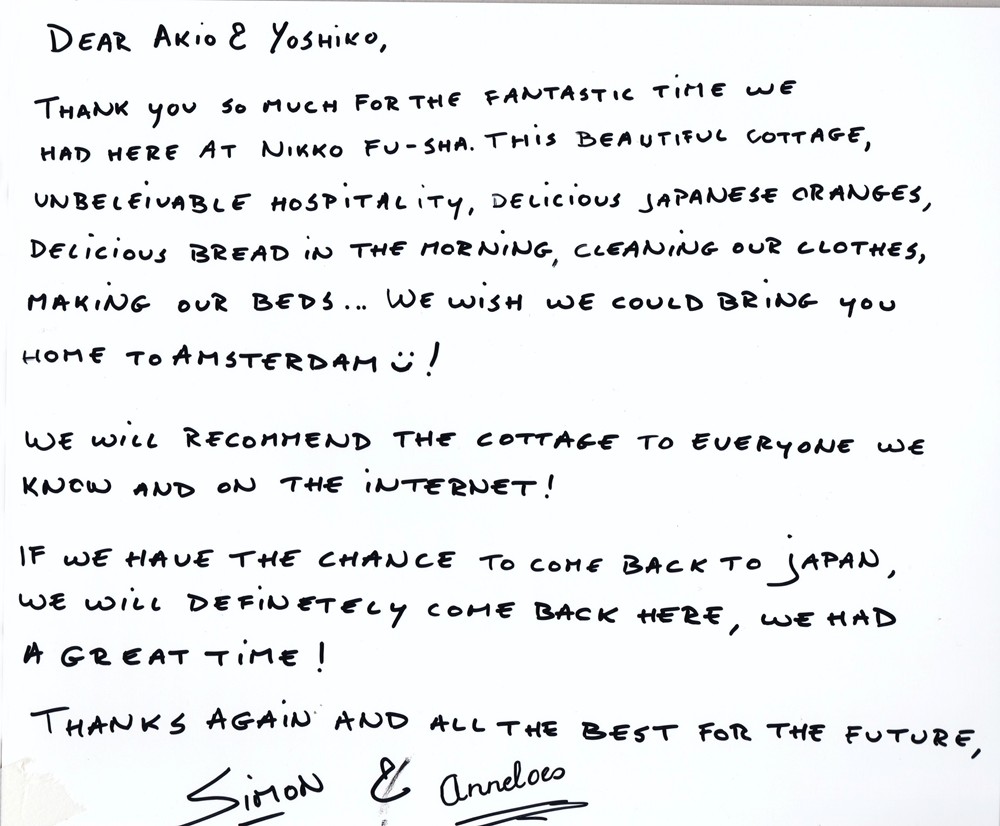 DEAR AKiO & YOSHiKO,
THANK YOU SO MUCH FOR THE FANTASTIC TiME WE
HAD HERE AT NiKKO FU-SHA. THiS BEAUTIFUL COTTAGE,
UNBELEIVABLE HOSPiTALiTY, DELiCiOUS JAPANESE ORANGES,
DELiCiOUS BREAD iN THE MORNiNG, CLEANiNG OUR CLOTHES,
MAKiNG OUR BEDS... WE WiSH WE COULD BRiNG YOU
HOME TO AMSTERDAM Ü!
WE WiLL RECOMMEND THE COTTAGE TO EVERYONE WE
KNOW AND ON THE iNTERNET!
IF WE HAVE THE CHANCE TO COME BACK TO jAPAN,
WE WiLL DEFiNETELY COME BACK HERE, WE HAD
A GREAT TiME!
THANKS AGAiN AND ALL THE BEST FOR THE FUTURE,
SiMON & Anneloes